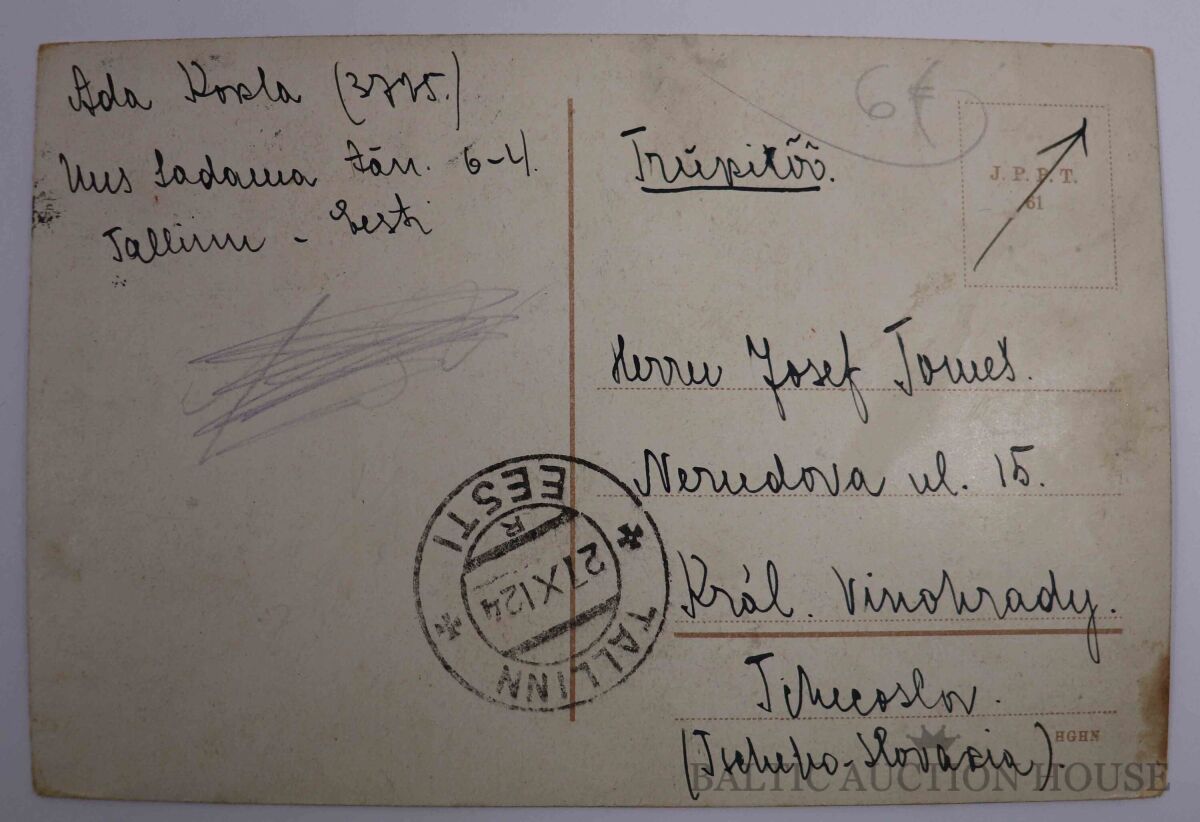 Ada Koxla (3775.)
Uus Sadama tän. 6-4.
Tallinn - Eesti
Trükitöö.
6€
J. P. P. T.
61
Herrn Josef Tomeš.
Nerudova ul. 15.
Král. Vinohrady.
Tchecoslov.
(Tscheho-Slovakia).
HGHN
EESTI
R
27 XI 24
TALLINN
BALTIC AUCTION HOUSE